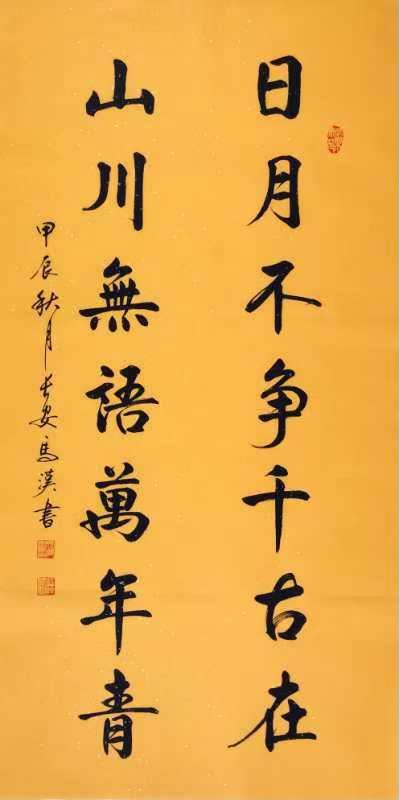 日月不争千古在
山川無語萬年青
甲辰秋月長安馬漢書